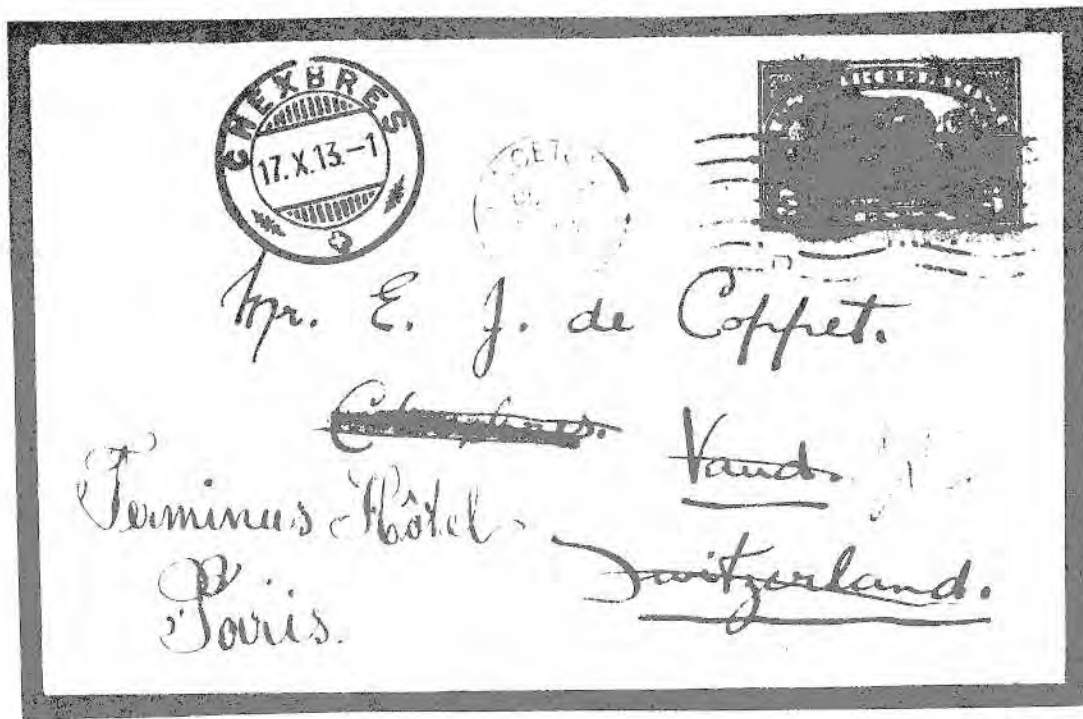 CHEXBRES
17. X. 13. – 1
Mr. E. J. de Coppet.
Vaud.
Terminus Hôtel
Switzerland.
Paris.